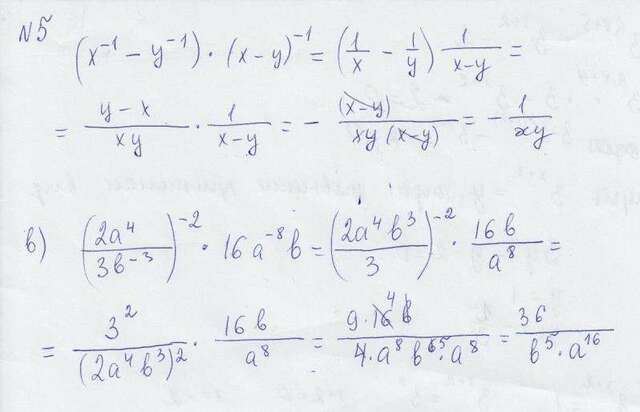 N5
(x⁻¹ − y⁻¹) · (x−y)⁻¹ = (1/x − 1/y) 1/(x−y) =
= (y−x)/(xy) · 1/(x−y) = − (x−y)/(xy(x−y)) = − 1/(xy)
в) (2a⁴/3в⁻³)⁻² · 16a⁻⁸в = (2a⁴в³/3)⁻² · 16в/a⁸ =
= 3²/(2a⁴в³)² · 16в/a⁸ = 9·16 4 в/(4·a⁸в⁶ ⁵·a⁸) = 36/(в⁵·a¹⁶)